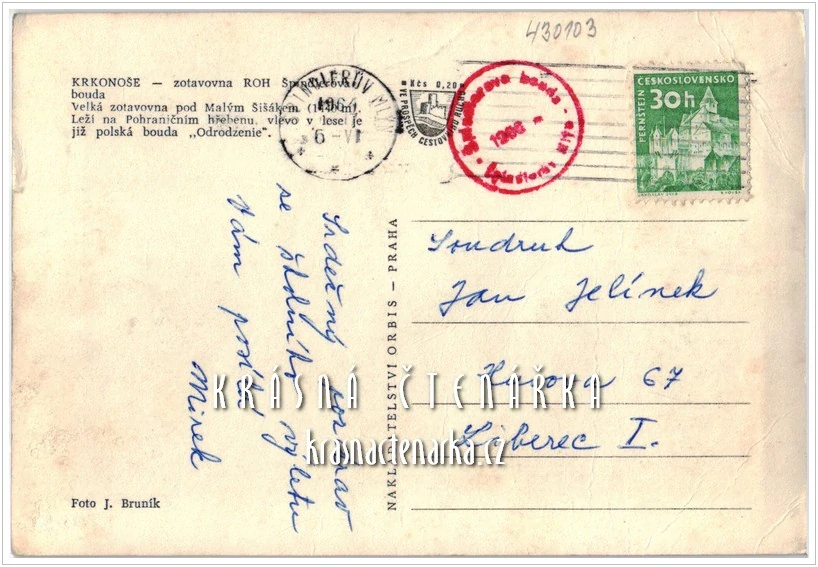 430103
KRKONOŠE — zotavovna ROH Špindlerova
bouda
Velká zotavovna pod Malým Šišákem
Leží na Pohraničním hřebenu, vlevo v lese je
již polská bouda „Odrodzenie".
ŠPINDLERŮV MLÝN
1966
6 -VI
Kčs 0,20
VE PROSPĚCH CESTOVNÍHO RUCHU
Špindlerova bouda
1966
PERNŠTEJN
ČESKOSLOVENSKO
30h
Srdečný pozdrav
se školního výletu
Vám posílá
Mirek
NAKLADATELSTVÍ ORBIS — PRAHA
Soudruh
Jan Jelínek
Husova 67
Liberec I.
KRÁSNÁ ČTENÁŘKA
krasnactenarka.cz
Foto J. Bruník